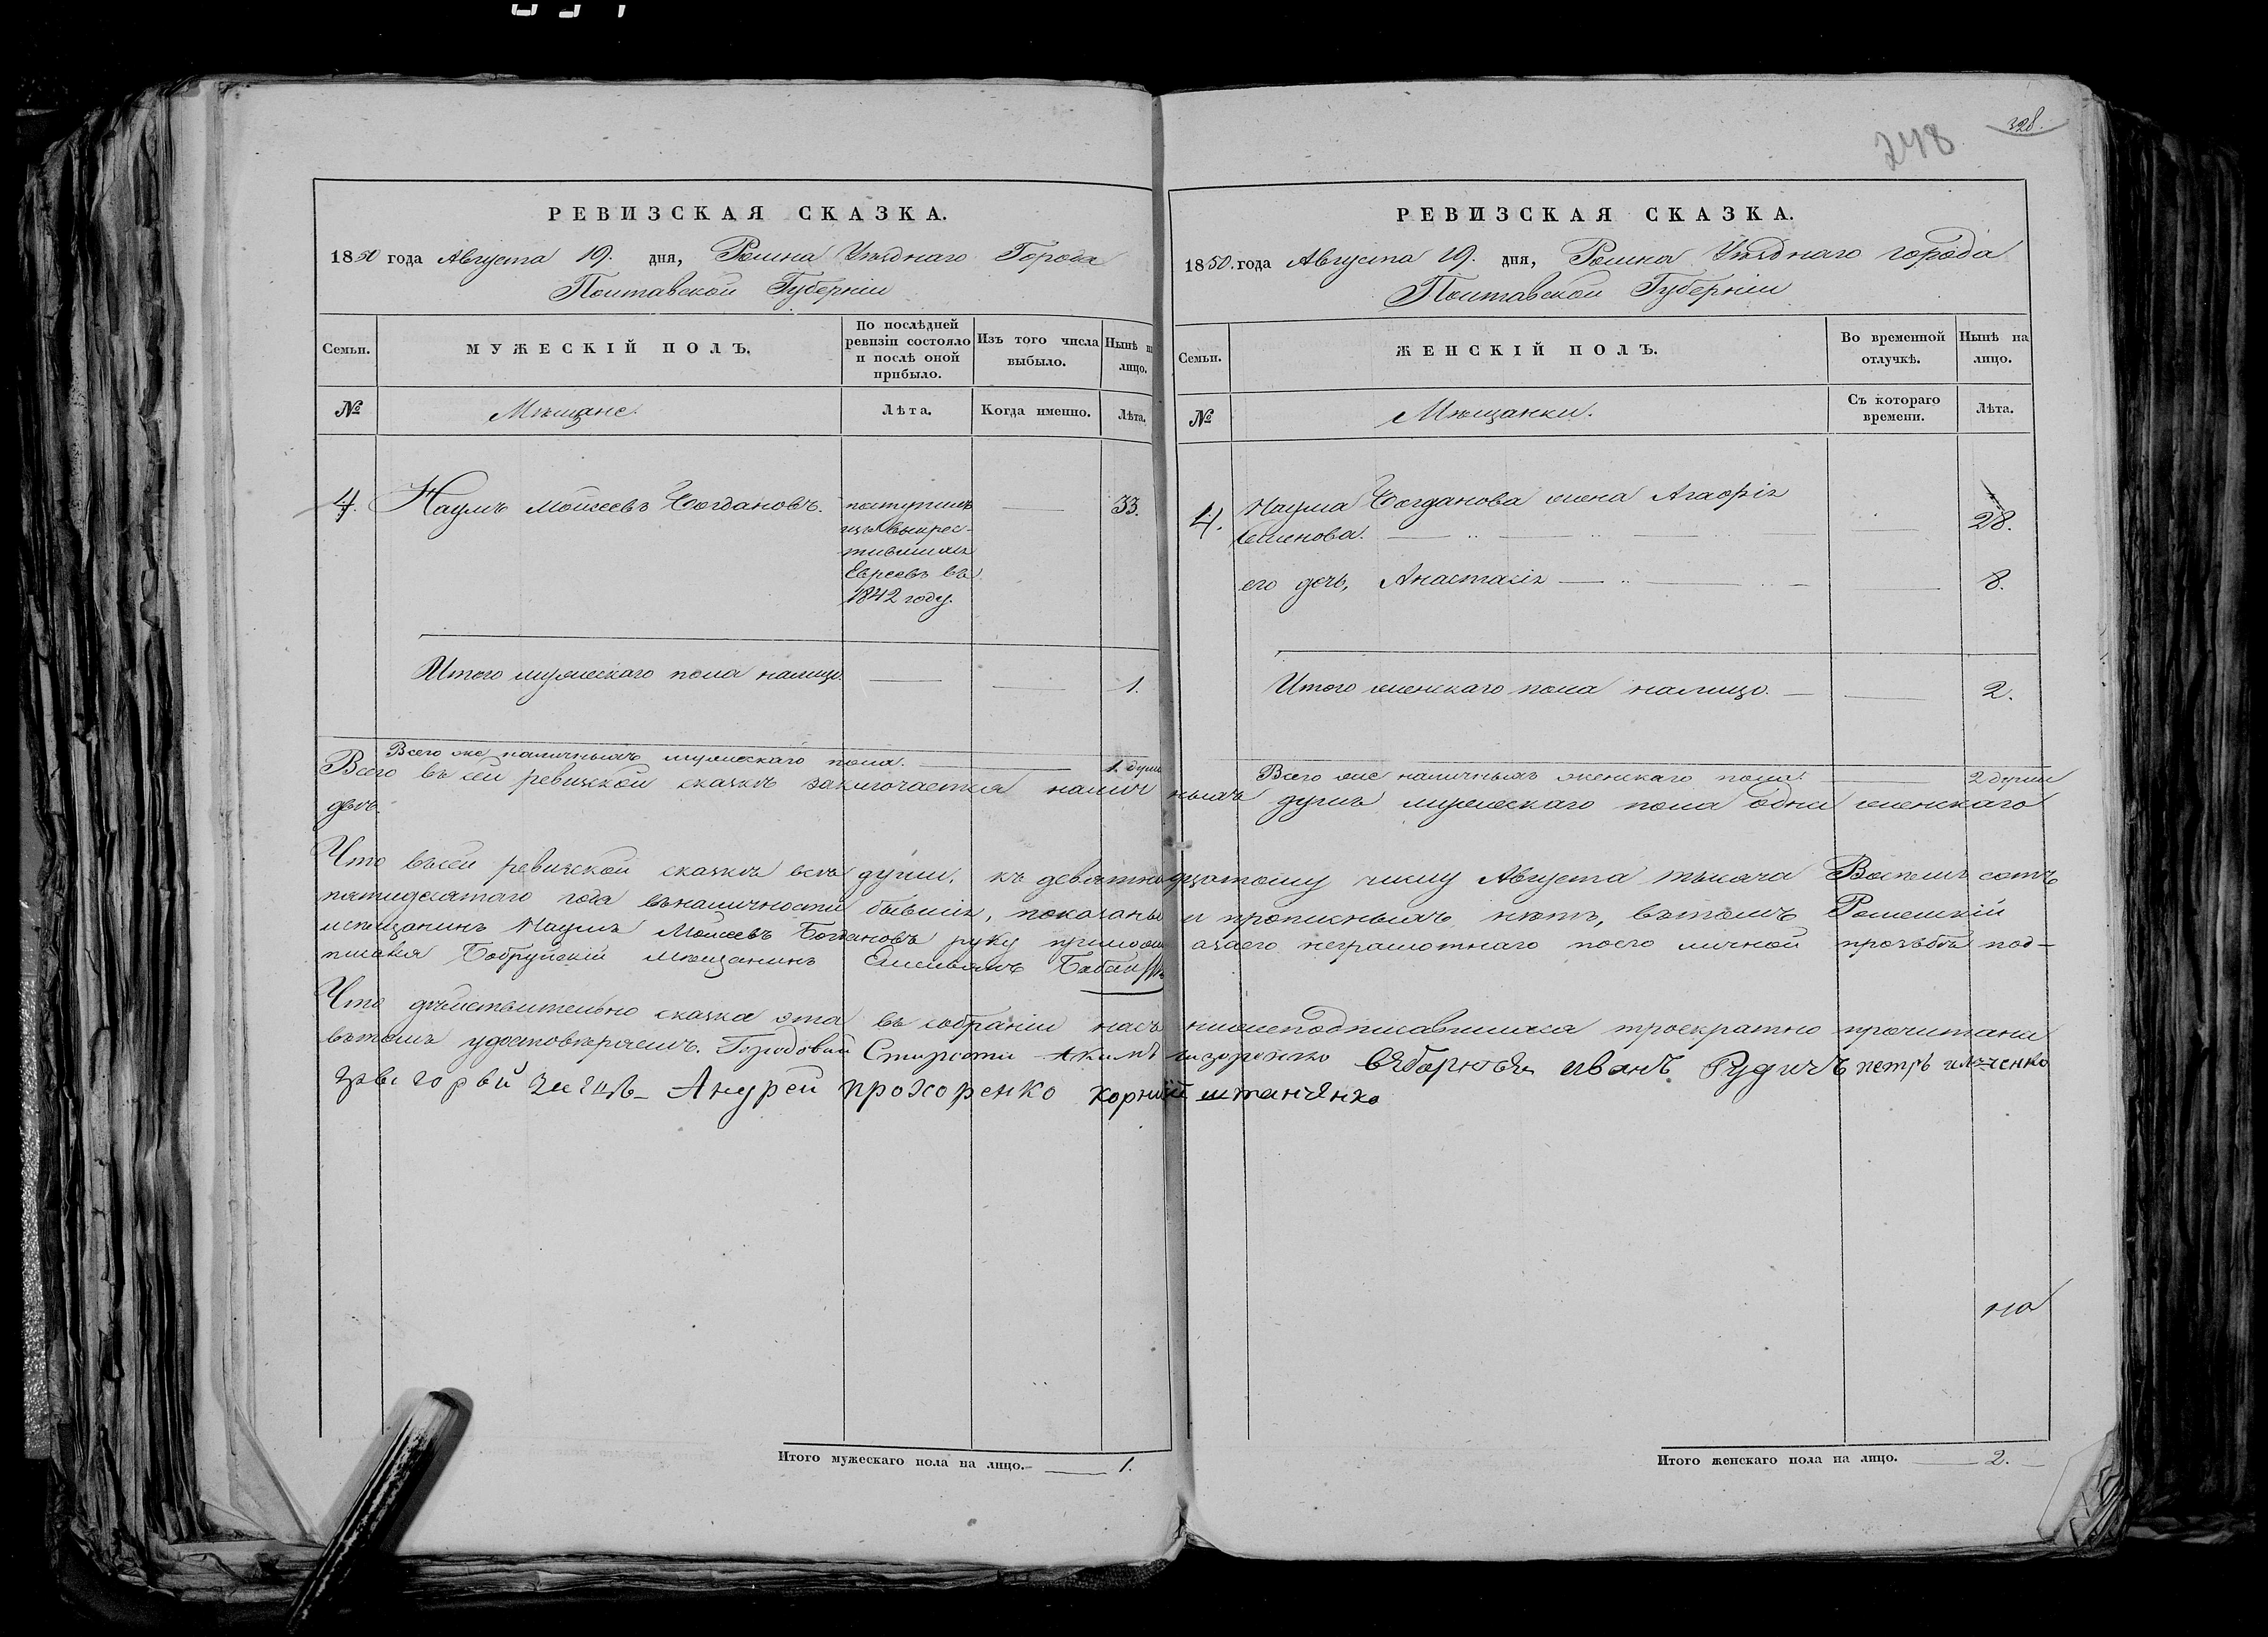 248
328.
РЕВИЗСКАЯ СКАЗКА.
1850 года Августа 19. дня, Ромна Уѣзднаго Города
Полтавской Губерніи
Семьи.
МУЖЕСКІЙ ПОЛЪ.
По послѣдней ревизіи состояло и послѣ оной прибыло.
Изъ того числа выбыло.
Нынѣ на лицо.
№
Мѣщане.
Лѣта.
Когда именно.
Лѣта.
4. Наумъ Моисеевъ Богдановъ.
поступилъ
изъ выкрес-
тившихся
Евреевъ въ
1842 году.
33.
Итого мужескаго пола налицо. 1.
Всего же наличныхъ мужескаго пола. 1. душа
РЕВИЗСКАЯ СКАЗКА.
1850. года Августа 19. дня, Ромна Уѣзднаго города
Полтавской Губерніи
Семьи.
ЖЕНСКІЙ ПОЛЪ.
Во временной отлучкѣ.
Нынѣ на лицо.
№
Мѣщанки.
Съ котораго времени.
Лѣта.
4. Наума Богданова жена Агафія
Семенова. 28.
его дочь, Анастасія 8.
Итого женскаго пола налицо. 2.
Всего же наличныхъ женскаго пола. 2 души
Всего въ сей ревизской сказкѣ заключается наличныхъ душъ мужескаго пола одна женскаго
двѣ.
Что въ сей ревизской сказкѣ всѣ души, къ девятнадцатому числу Августа тысяча Восемь сотъ
пятидесятаго года въ наличности бывшія, показаны и прописныхъ нѣтъ, въ томъ Роменскій
мѣщанинъ Наумъ Моисеевъ Богдановъ руку приложил азаего неграмотнаго поего личной прозьбѣ под-
писался Бобруйскій мѣщанинъ
Что дѣйствительно сказка эта въ собраніи насъ нижеподписавшихся троекратно прочитана
въ томъ удостовѣряемъ. Городовый Староста Акимъ иванъ Рудичъ петръ
Андрей прохоренко корній штанченко
на
Итого мужескаго пола на лицо. 1.
Итого женскаго пола на лицо. 2.